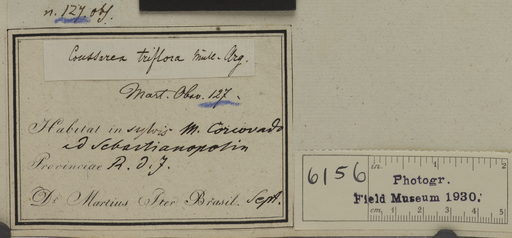 n. 127. obs.
Coussarea triflora Müll-Arg.
Mart. Obs. 127.
Habitat in sylvis M. Corcovado
ad Sebastianopolin
Provinciae R. d. J.
Dr Martius Iter Brasil. Sept.
6156
in.
1
2
Photogr.
Field Museum 1930.
cm.
1
2
3
4
5